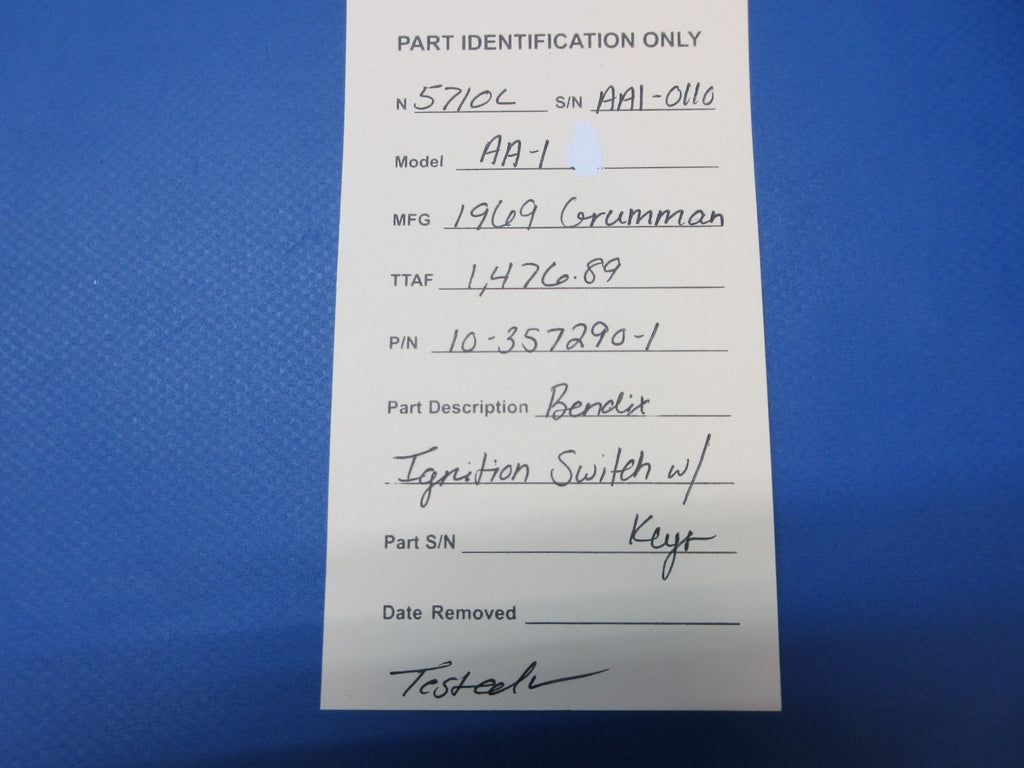 PART IDENTIFICATION ONLY
N 5710L S/N AA1-0110
Model AA-1
MFG 1969 Grumman
TTAF 1,476.89
P/N 10-357290-1
Part Description Bendix
Ignition Switch w/
Part S/N Keys
Date Removed
Tested